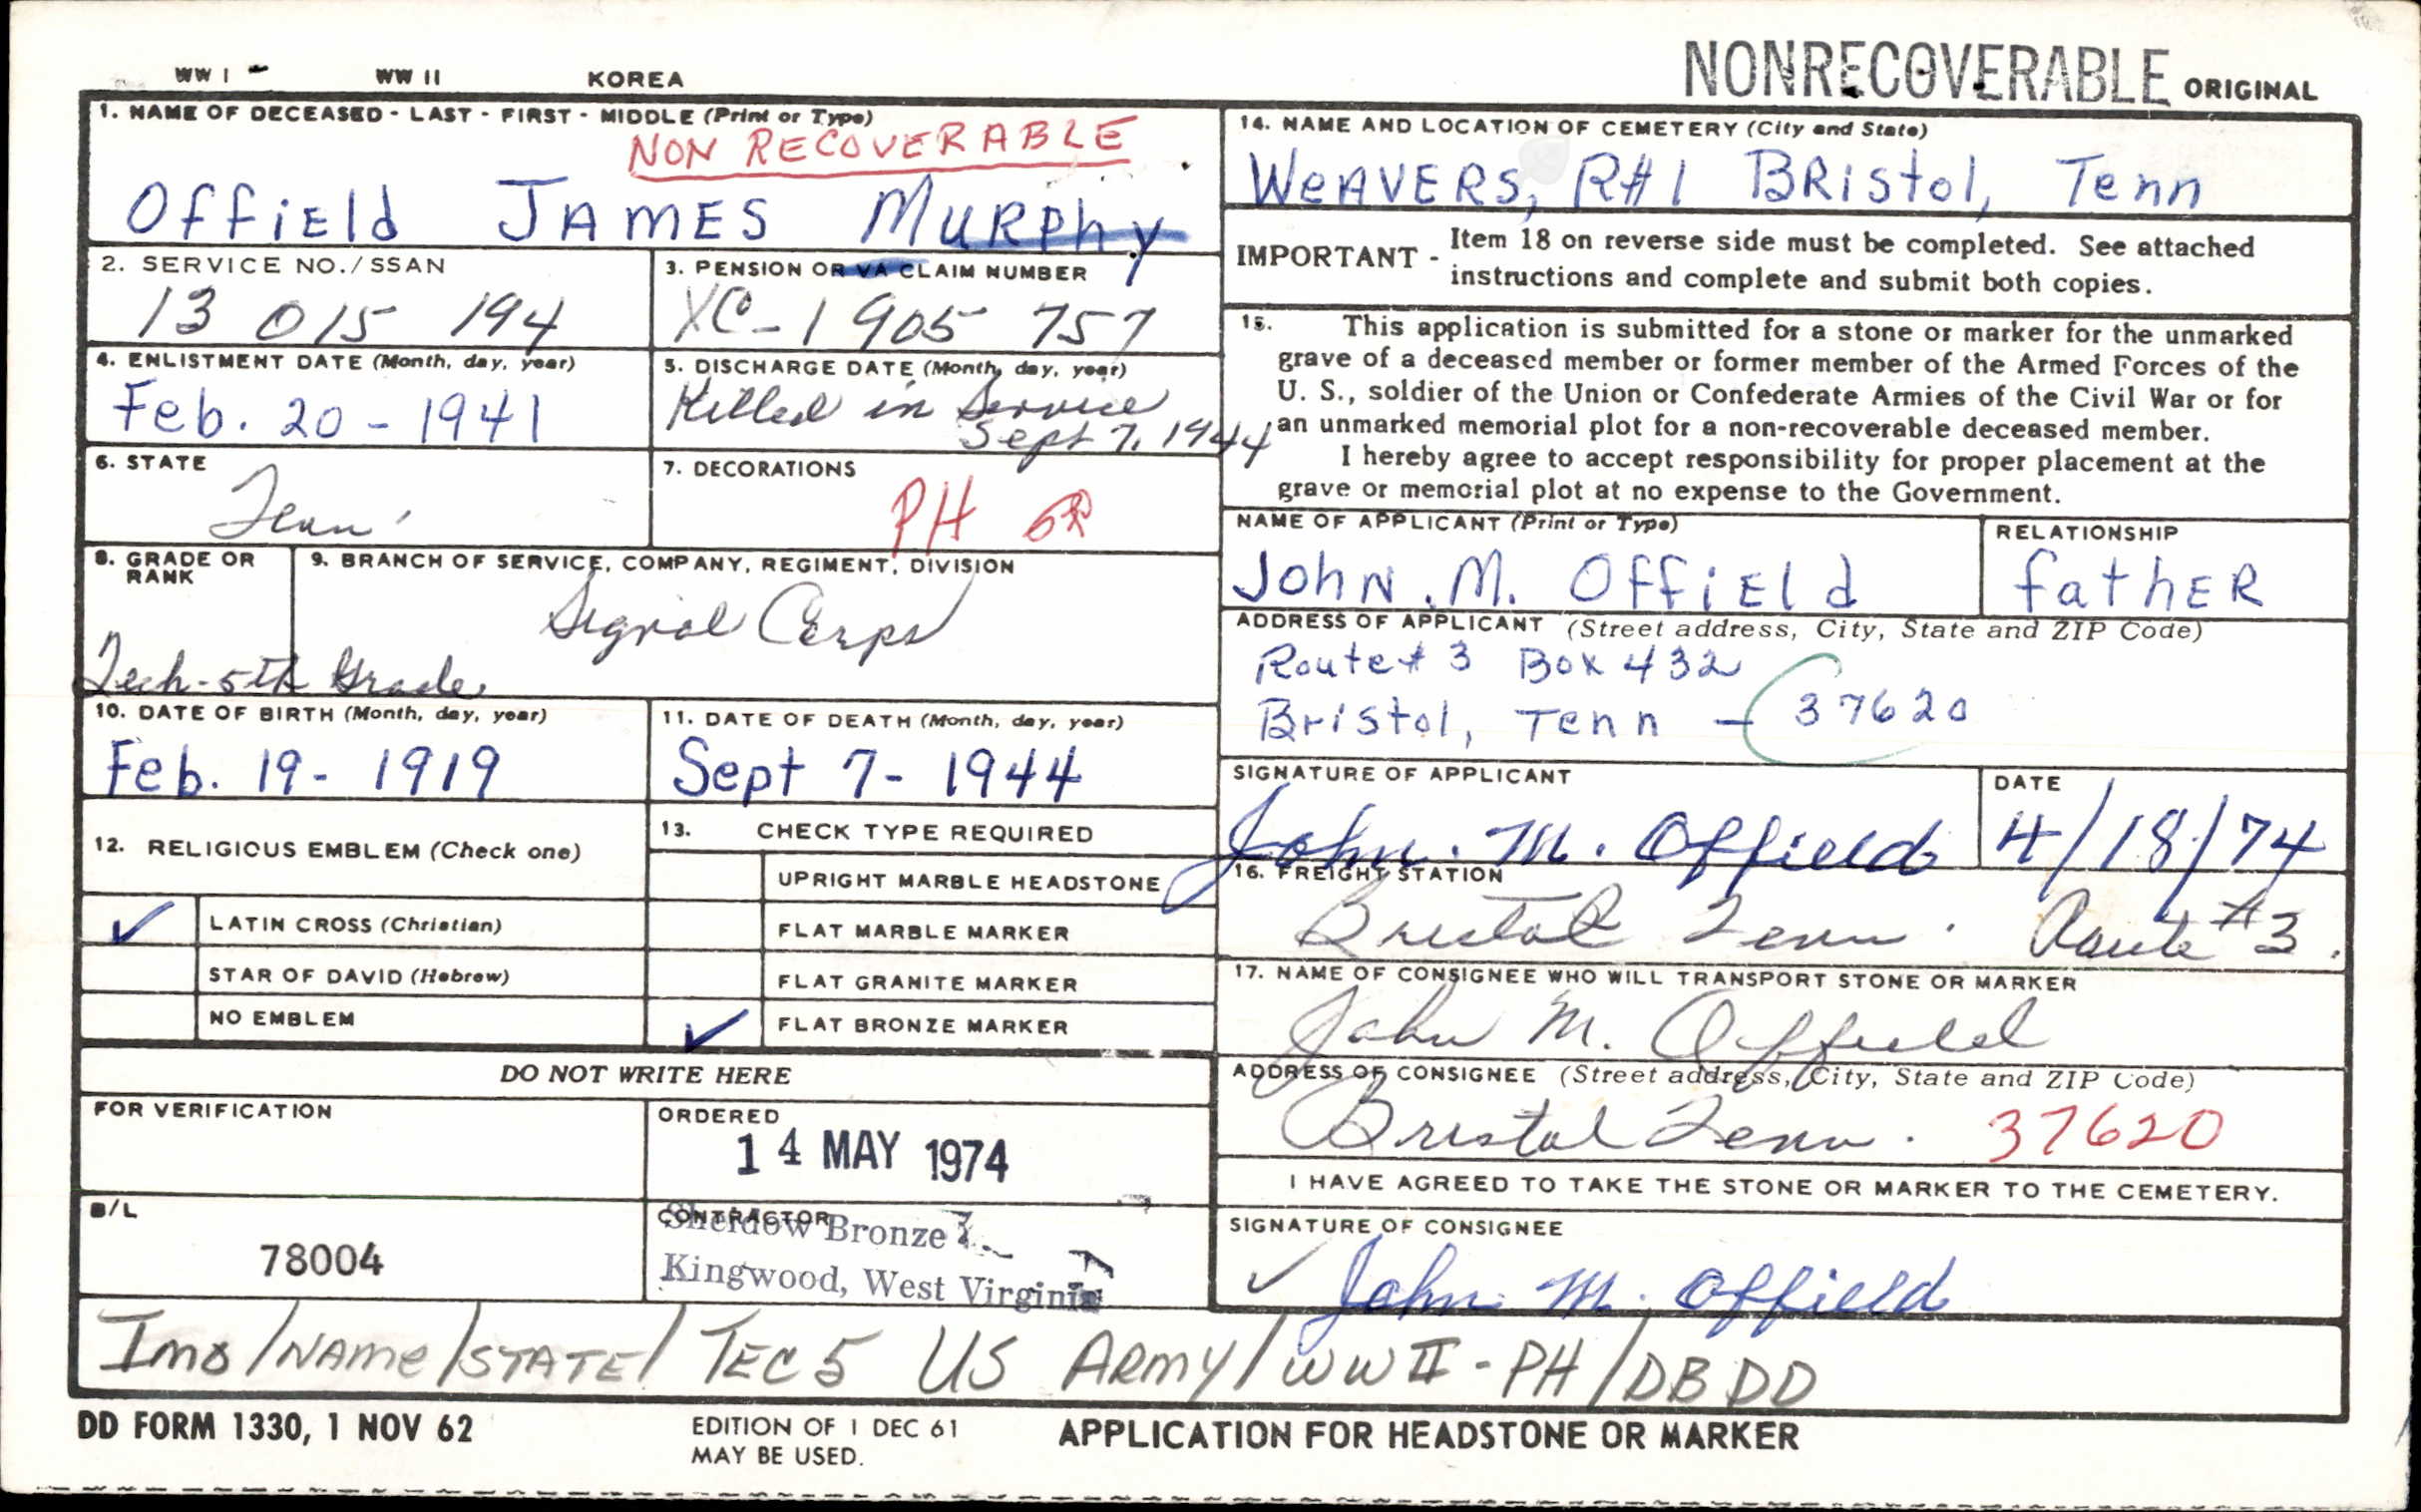 WW I WW II KOREA
NONRECOVERABLE ORIGINAL
1. NAME OF DECEASED - LAST - FIRST - MIDDLE (Print or Type)
NON RECOVERABLE
OffiEld JAMES MURPhy
2. SERVICE NO./SSAN
13 015 194
3. PENSION OR VA CLAIM NUMBER
XC-1 905 757
4. ENLISTMENT DATE (Month, day, year)
Feb. 20 - 1941
5. DISCHARGE DATE (Month, day, year)
Killed in Service
Sept 7, 1944
6. STATE
Tenn
7. DECORATIONS
PH
8. GRADE OR RANK
Tech-5th Grade
9. BRANCH OF SERVICE, COMPANY, REGIMENT, DIVISION
Signal Corps
10. DATE OF BIRTH (Month, day, year)
Feb. 19 - 1919
11. DATE OF DEATH (Month, day, year)
Sept 7 - 1944
12. RELIGIOUS EMBLEM (Check one)
✓ LATIN CROSS (Christian)
STAR OF DAVID (Hebrew)
NO EMBLEM
13. CHECK TYPE REQUIRED
UPRIGHT MARBLE HEADSTONE
FLAT MARBLE MARKER
FLAT GRANITE MARKER
✓ FLAT BRONZE MARKER
DO NOT WRITE HERE
FOR VERIFICATION
ORDERED
14 MAY 1974
B/L
78004
CONTRACTOR
Sheidow Bronze
Kingwood, West Virginia
14. NAME AND LOCATION OF CEMETERY (City and State)
WeAVERS, R#1 BRistol, Tenn
IMPORTANT - Item 18 on reverse side must be completed. See attached
instructions and complete and submit both copies.
15. This application is submitted for a stone or marker for the unmarked
grave of a deceased member or former member of the Armed Forces of the
U. S., soldier of the Union or Confederate Armies of the Civil War or for
an unmarked memorial plot for a non-recoverable deceased member.
I hereby agree to accept responsibility for proper placement at the
grave or memorial plot at no expense to the Government.
NAME OF APPLICANT (Print or Type)
JohN. M. OffiEld
RELATIONSHIP
fathER
ADDRESS OF APPLICANT (Street address, City, State and ZIP Code)
Route# 3 Box 432
Bristol, Tenn - 37620
SIGNATURE OF APPLICANT
John. M. Offield
DATE
4/18/74
16. FREIGHT STATION
Bristol Tenn. Route #3.
17. NAME OF CONSIGNEE WHO WILL TRANSPORT STONE OR MARKER
John M. Offield
ADDRESS OF CONSIGNEE (Street address, City, State and ZIP Code)
Bristol Tenn. 37620
I HAVE AGREED TO TAKE THE STONE OR MARKER TO THE CEMETERY.
SIGNATURE OF CONSIGNEE
✓ John M. Offield
Imo/NAME/STATE/ TEC 5 US ARMY/WW II - PH/DBDD
DD FORM 1330, 1 NOV 62
EDITION OF 1 DEC 61
MAY BE USED.
APPLICATION FOR HEADSTONE OR MARKER